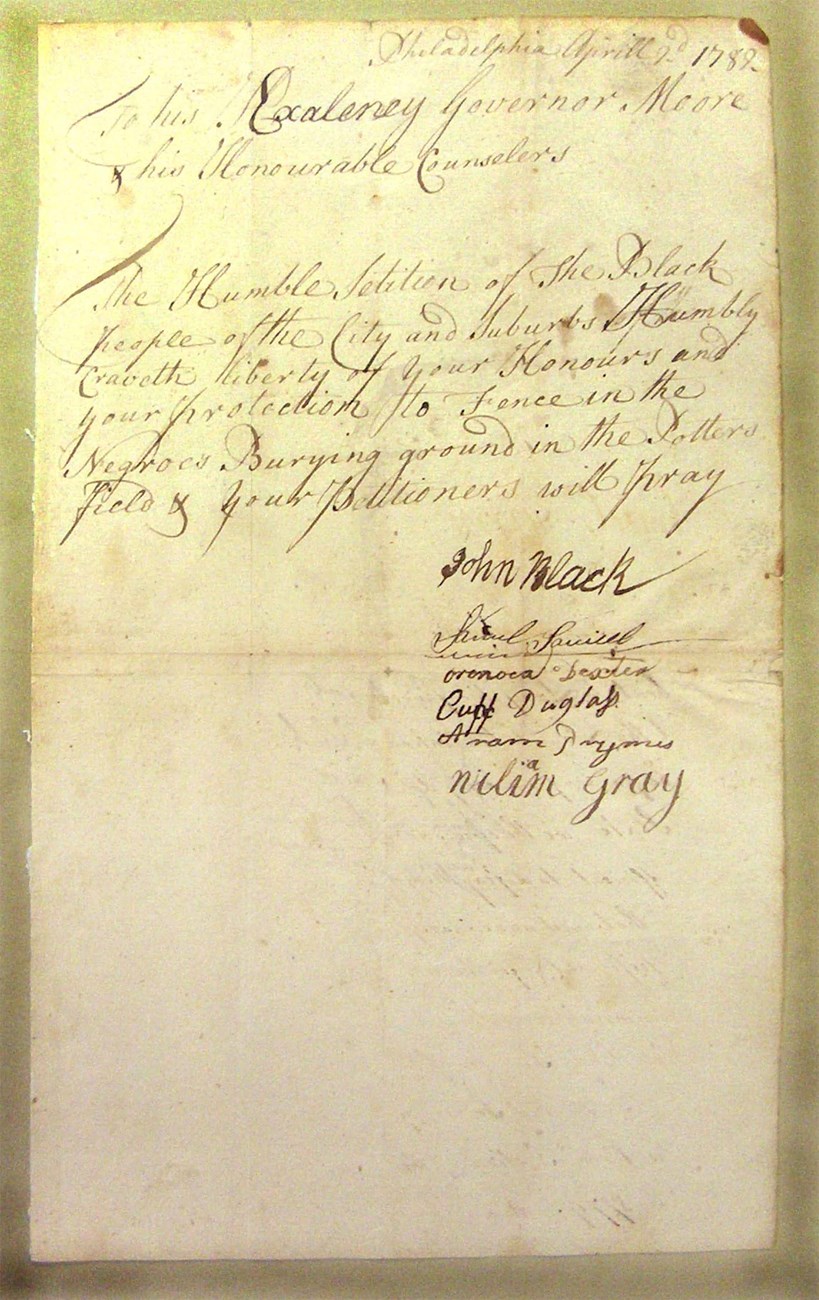 Philadelphia Aprill 2d 1782
To his Exaleney Governor Moore
& his Honourable Counselers
The Humble Petition of The Black
people of the City and Suburbs Humbly
Craveth liberty of your Honours and
your protection to Fence in the
Negroes Burying ground in the Potters
Field & your Petitioners will pray
John Black
Saml Saviel
oronoca Dexter
Cuff Duglass
Aram Prymus
Wiliam Gray